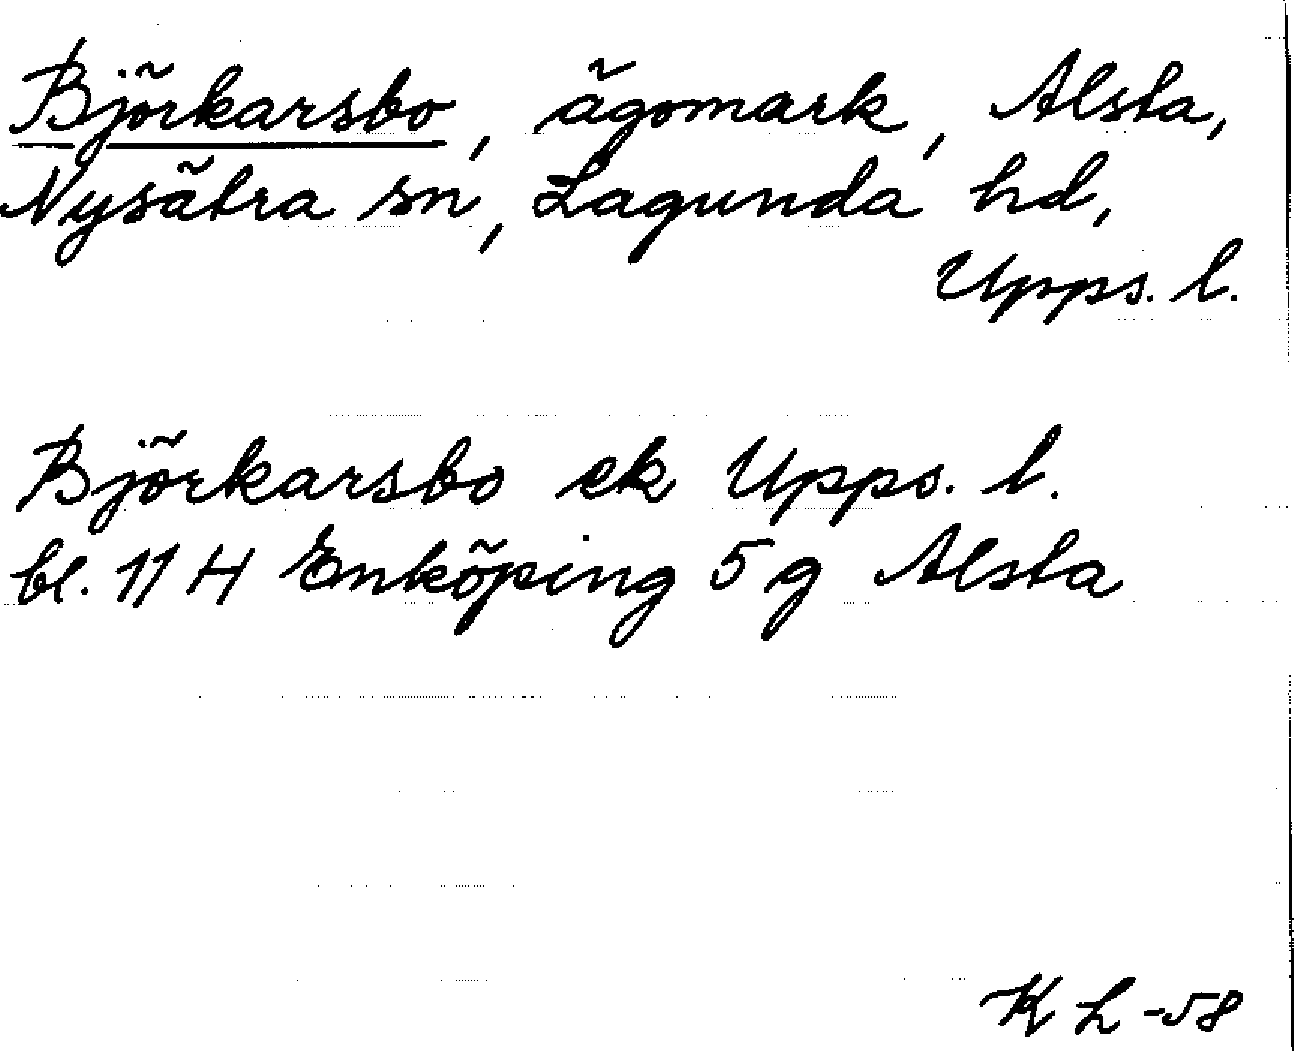 Björkarsbo, ägomark, Alsta,
Nysätra sn, Lagunda hd,
Upps. l.
Björkarsbo ek Upps. l.
bl. 11 H Enköping 5 g Alsta
K L -58